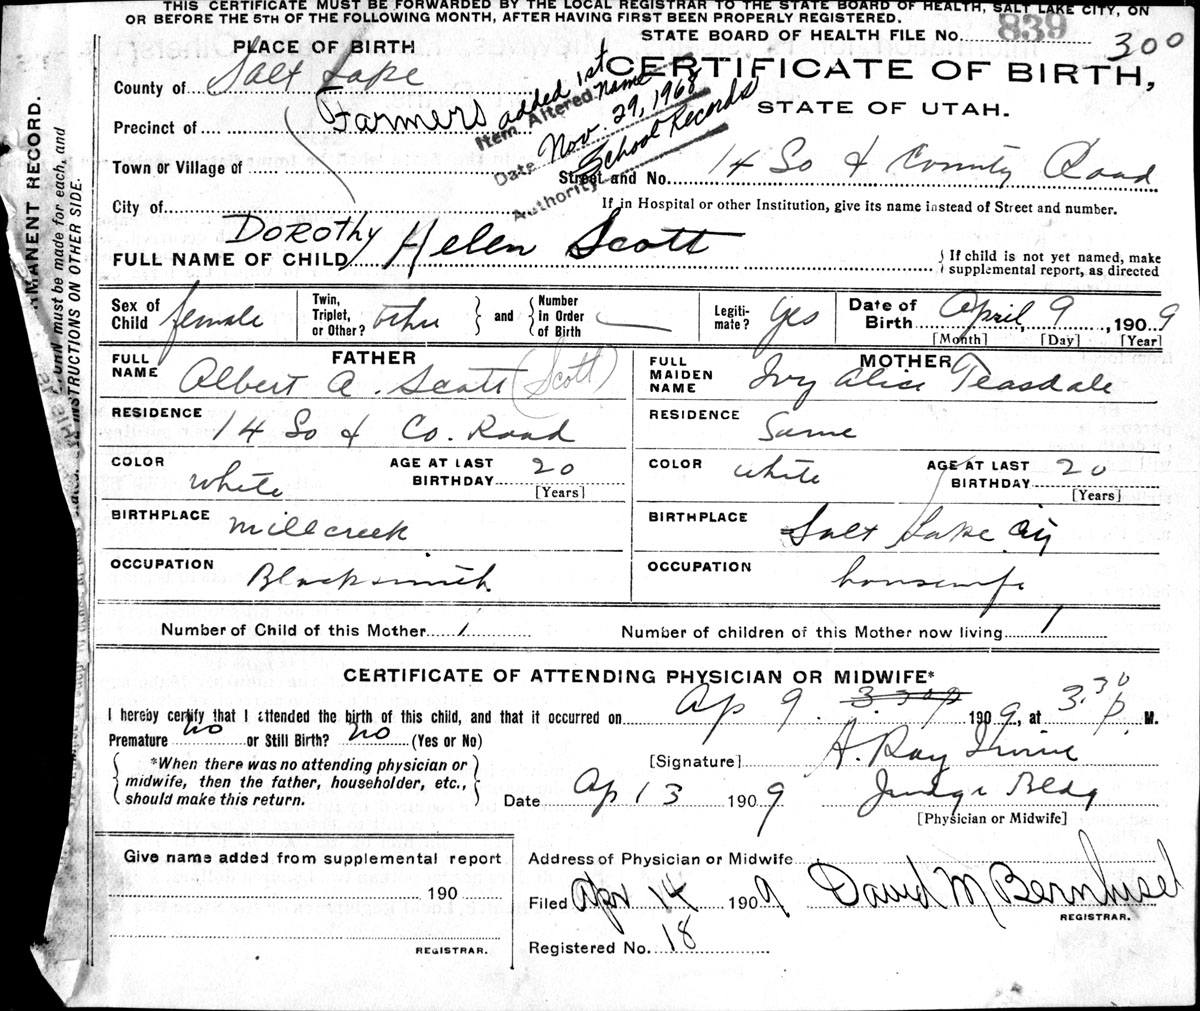 THIS CERTIFICATE MUST BE FORWARDED BY THE LOCAL REGISTRAR TO THE STATE BOARD OF HEALTH, SALT LAKE CITY, ON
OR BEFORE THE 5TH OF THE FOLLOWING MONTH, AFTER HAVING FIRST BEEN PROPERLY REGISTERED.
STATE BOARD OF HEALTH FILE No. 839 300
PLACE OF BIRTH
CERTIFICATE OF BIRTH,
STATE OF UTAH.
County of Salt Lake
Precinct of Farmers
added 1st Name
Item Altered
Date Nov. 29, 1968
School Records
Authority
Town or Village of
Street and No. 14 So & County Road
City of
If in Hospital or other Institution, give its name instead of Street and number.
FULL NAME OF CHILD DOROTHY Helen Scott
If child is not yet named, make supplemental report, as directed
Sex of Child female
Twin, Triplet, or Other? other
and Number in Order of Birth
Legitimate? Yes
Date of Birth April 9, 1909
[Month] [Day] [Year]
FATHER
FULL NAME Albert A. Scott (Scott)
RESIDENCE 14 So & Co. Road
COLOR white AGE AT LAST BIRTHDAY 20 [Years]
BIRTHPLACE Millcreek
OCCUPATION Blacksmith
MOTHER
FULL MAIDEN NAME Ivy Alice Teasdale
RESIDENCE Same
COLOR white AGE AT LAST BIRTHDAY 20 [Years]
BIRTHPLACE Salt Lake City
OCCUPATION housewife
Number of Child of this Mother 1 Number of children of this Mother now living 1
CERTIFICATE OF ATTENDING PHYSICIAN OR MIDWIFE*
I hereby certify that I attended the birth of this child, and that it occurred on Ap 9 3.30p 1909, at 3.30 p. M.
Premature no or Still Birth? no (Yes or No)
*When there was no attending physician or midwife, then the father, householder, etc., should make this return.
[Signature] A. Ray Irvine
Date Ap 13 1909 Judge Bldg
[Physician or Midwife]
Give name added from supplemental report
190
REGISTRAR.
Address of Physician or Midwife
Filed Apr 14 1909 David M Bernhisel
REGISTRAR.
Registered No. 18
MANENT RECORD.
must be made for each, and
INSTRUCTIONS ON OTHER SIDE.